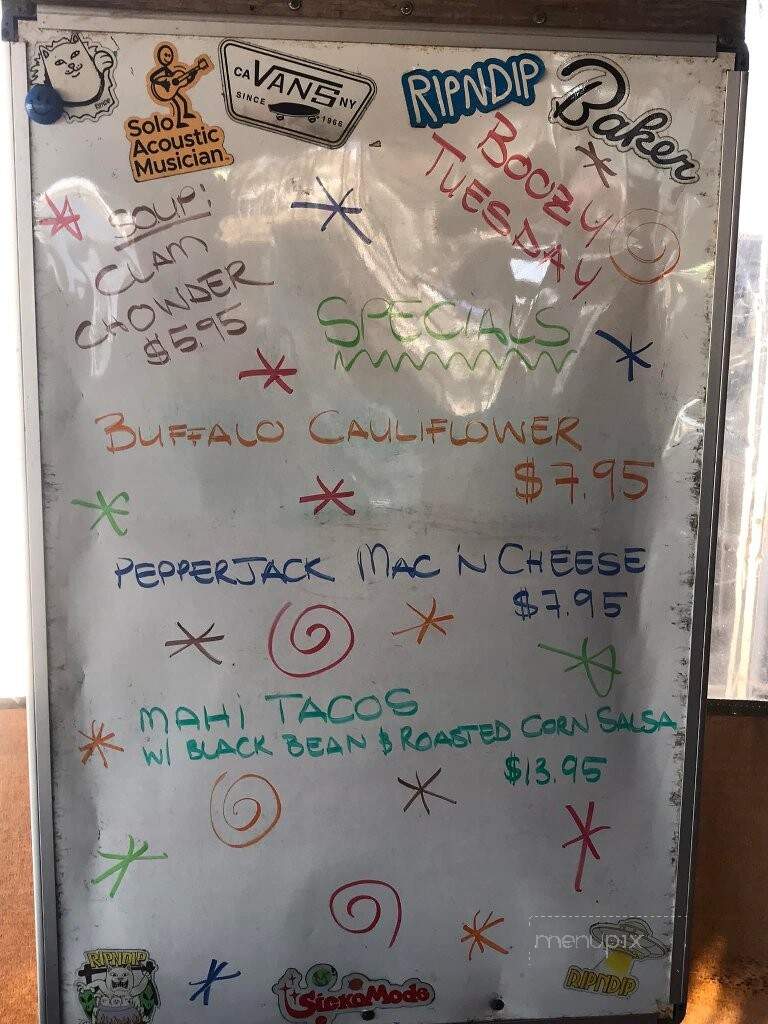 Solo
Acoustic
Musician.
CA VANS NY
SINCE 1966
RIPNDIP
Baker
BOOZY
TUESDAY
SOUP:
CLAM
CHOWDER
$5.95
SPECIALS
BUFFALO CAULIFLOWER
$7.95
PEPPERJACK MAC N CHEESE
$7.95
MAHI TACOS
W/ BLACK BEAN & ROASTED CORN SALSA
$13.95
menupix
RIPNDIP
SickoMode
RIPNDIP